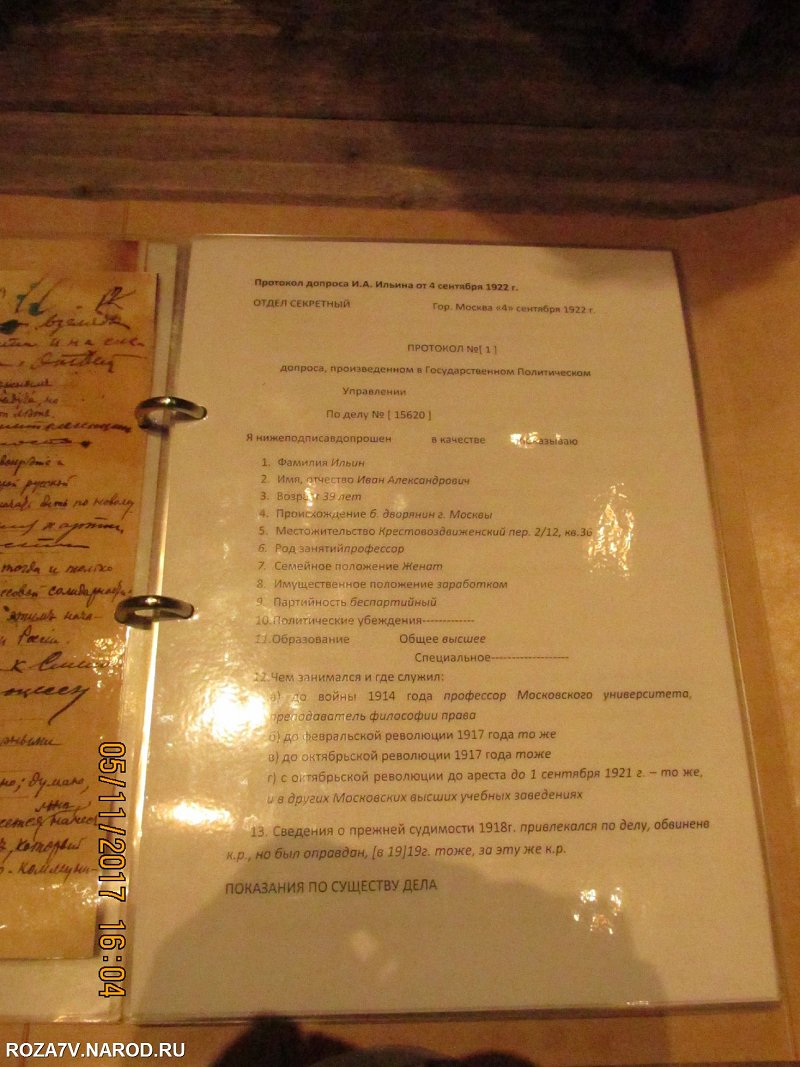 взгляда
и на сле-
Ответ
русской
жить по новому
тогда и только
России.
думаю,
который
Протокол допроса И.А. Ильина от 4 сентября 1922 г.
ОТДЕЛ СЕКРЕТНЫЙ Гор. Москва «4» сентября 1922 г.
ПРОТОКОЛ №[ 1 ]
допроса, произведенном в Государственном Политическом
Управлении
По делу № [ 15620 ]
Я нижеподписавдопрошен в качестве показываю
1. Фамилия Ильин
2. Имя, отчество Иван Александрович
3. Возраст 39 лет
4. Происхождение б. дворянин г. Москвы
5. Местожительство Крестовоздвиженский пер. 2/12, кв.36
6. Род занятийпрофессор
7. Семейное положение Женат
8. Имущественное положение заработком
9. Партийность беспартийный
10.Политические убеждения-------------
11.Образование Общее высшее
Специальное-------------------
12.Чем занимался и где служил:
а) до войны 1914 года профессор Московского университета,
преподаватель философии права
б) до февральской революции 1917 года то же
в) до октябрьской революции 1917 года тоже
г) с октябрьской революции до ареста до 1 сентября 1921 г. – то же,
и в других Московских высших учебных заведениях
13. Сведения о прежней судимости 1918г. привлекался по делу, обвиненв
к.р., но был оправдан, [в 19]19г. тоже, за эту же к.р.
ПОКАЗАНИЯ ПО СУЩЕСТВУ ДЕЛА
05/11/2017 16:04
ROZA7V.NAROD.RU